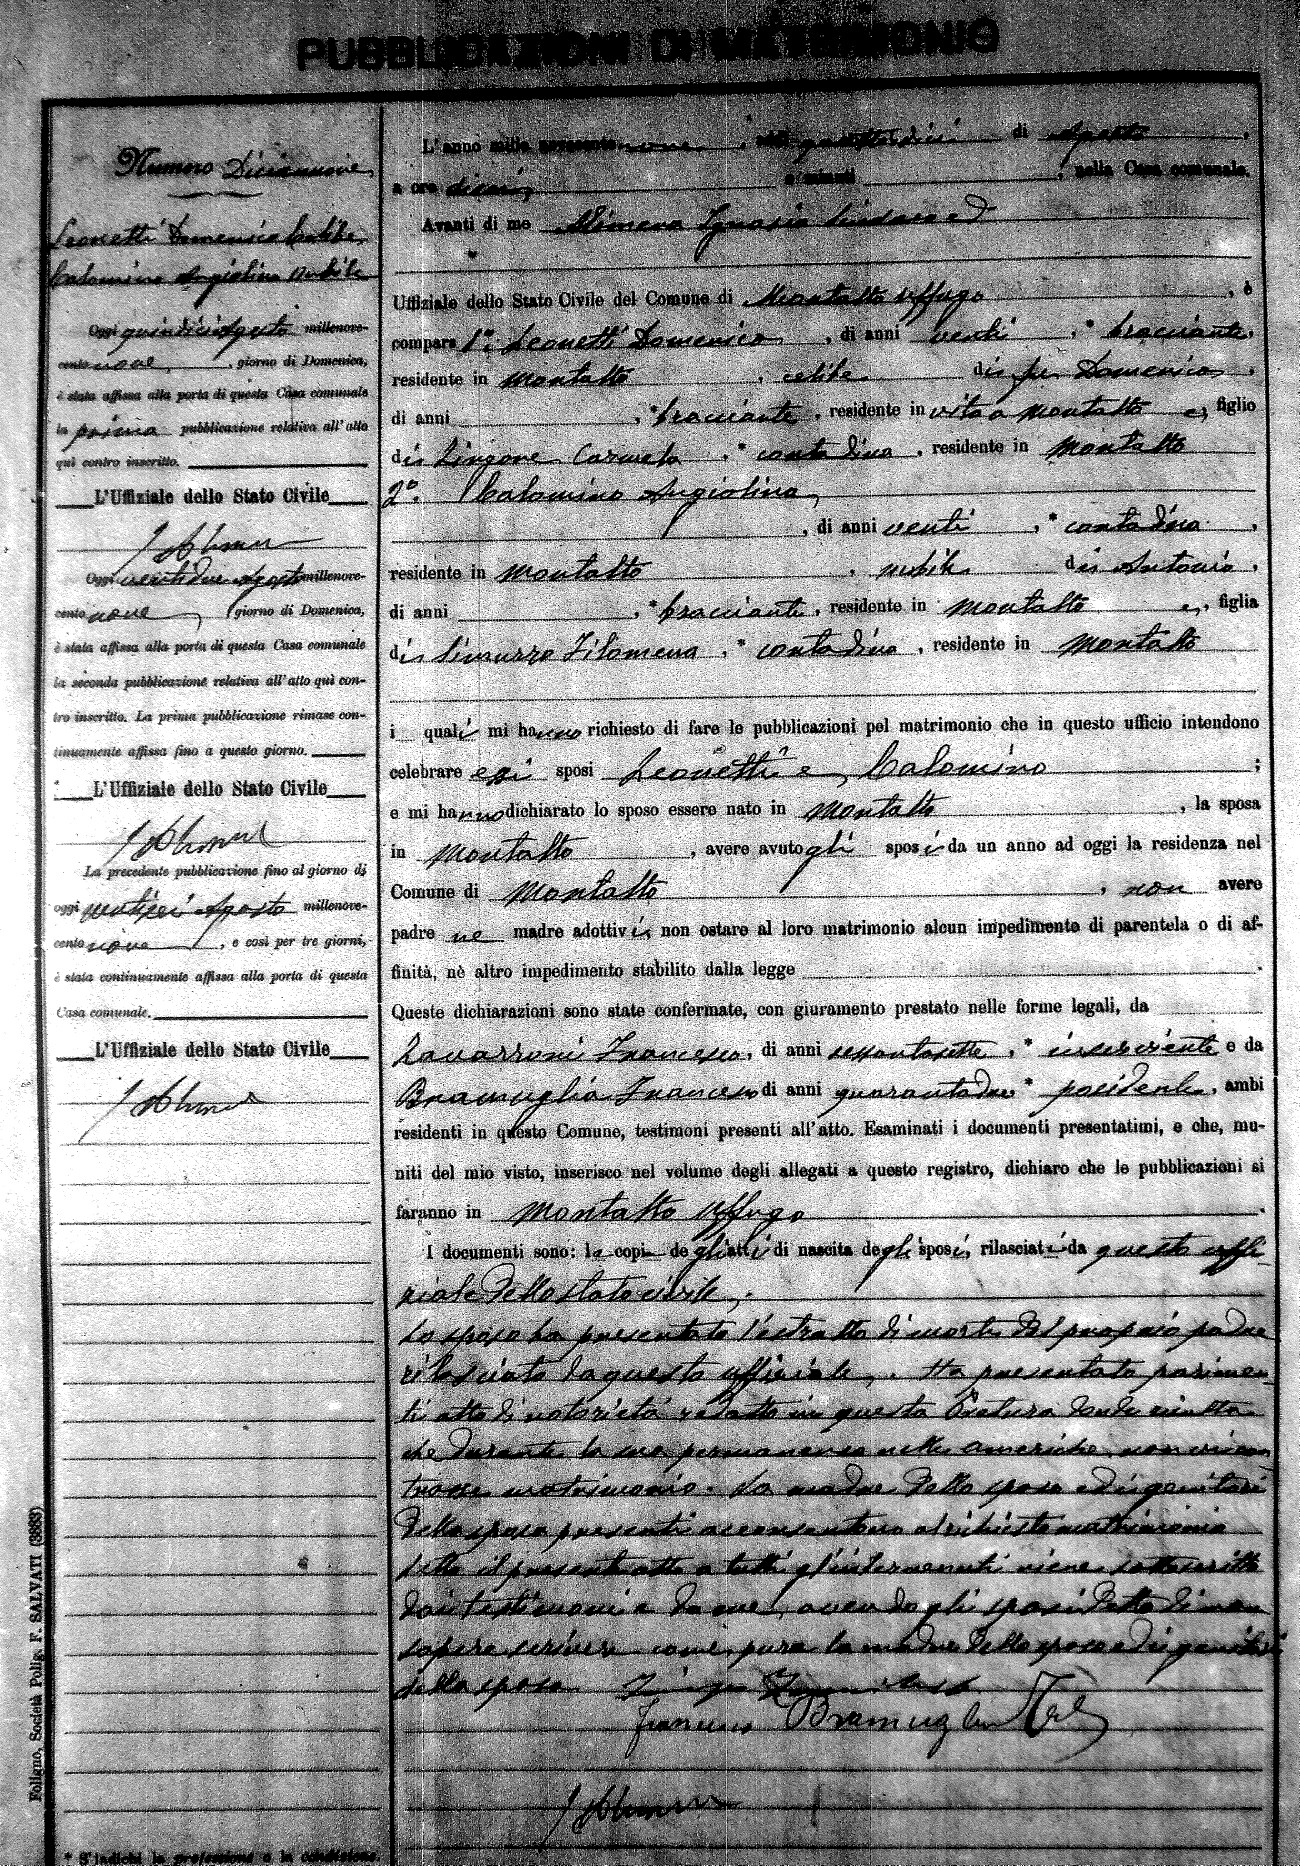 PUBBLICAZIONI DI MATRIMONIO
Numero Diciannove
Leonetti Domenico Celibe
Calomino Angiolina Nubile
Oggi quindici Agosto millenove-
cento nove, giorno di Domenica,
è stata affissa alla porta di questa Casa comunale
la prima pubblicazione relativa all'atto
quì contro inscritto.
L'Uffiziale dello Stato Civile
Oggi ventidue Agosto millenove-
cento nove, giorno di Domenica,
è stata affissa alla porta di questa Casa comunale
la seconda pubblicazione relativa all'atto quì con-
tro inscritto. La prima pubblicazione rimase con-
tinuamente affissa fino a questo giorno.
L'Uffiziale dello Stato Civile
La precedente pubblicazione fino al giorno di
oggi Agosto millenove-
cento nove, e così per tre giorni,
è stata continuamente affissa alla porta di questa
Casa comunale.
L'Uffiziale dello Stato Civile
L'anno mille novecento nove, addì quattordici di Agosto,
a ore dieci, e minuti , nella Casa comunale.
Avanti di me Alimena Ignazio Sindaco ed
Uffiziale dello Stato Civile del Comune di Montalto Uffugo, è
compars 1° Leonetti Domenico, di anni venti, * bracciante,
residente in Montalto, celibe di fu Domenico,
di anni , * bracciante, residente in vita a Montalto e, figlio
di Carmela, * contadina, residente in Montalto
2°. Calomino Angiolina
, di anni venti, * contadina,
residente in Montalto, nubile di Antonio,
di anni , * bracciante, residente in Montalto e, figlia
di Filomena, * contadina, residente in Montalto
i quali mi hanno richiesto di fare le pubblicazioni pel matrimonio che in questo ufficio intendono
celebrare essi sposi Leonetti e Calomino ;
e mi hanno dichiarato lo sposo essere nato in Montalto, la sposa
in Montalto, avere avuto gli sposi da un anno ad oggi la residenza nel
Comune di Montalto, non avere
padre nè madre adottivi; non ostare al loro matrimonio alcun impedimento di parentela o di af-
finità, nè altro impedimento stabilito dalla legge .
Queste dichiarazioni sono state confermate, con giuramento prestato nelle forme legali, da
Francesco, di anni sessantasette, * inserviente e da
Bramuglia Francesco di anni quarantadue * possidente, ambi
residenti in questo Comune, testimoni presenti all'atto. Esaminati i documenti presentatimi, e che, mu-
niti del mio visto, inserisco nel volume degli allegati a questo registro, dichiaro che le pubblicazioni si
faranno in Montalto Uffugo.
I documenti sono: le copie degli atti di nascita degli sposi, rilasciati da questo uffi-
ziale dello stato civile.
Lo sposo ha presentato l'estratto di morte del proprio padre
rilasciato da questo ufficiale. Ha presentato parimen-
ti atto di notorietà redatto in questa Pretura donde risulta
che durante la sua permanenza nelle americhe non con-
trasse matrimonio. La madre dello sposo ed i genitori
della sposa presenti acconsentono al richiesto matrimonio
letto il presente atto a tutti gl'intervenuti viene sottoscritto
dai testimoni e da me, avendo gli sposi detto di non
sapere scrivere come pure la madre dello sposo ed i genitori
della sposa
Francesco Bramuglia
Foligno, Società Polig. F. SALVATI (3883)
* S'indichi la professione o la condizione.